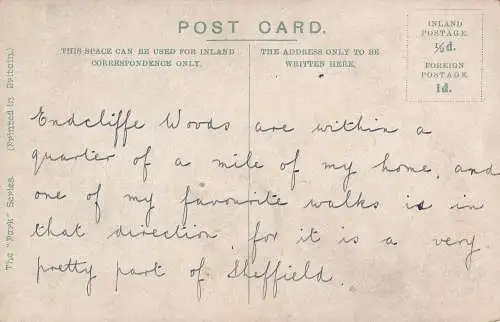 POST CARD.
THIS SPACE CAN BE USED FOR INLAND
CORRESPONDENCE ONLY.
THE ADDRESS ONLY TO BE
WRITTEN HERE.
INLAND
POSTAGE
½d.
FOREIGN
POSTAGE
1d.
The "Park" Series. (Printed in Britain.)
Endcliffe Woods are within a
quarter of a mile of my home, and
one of my favourite walks is in
that direction, for it is a very
pretty part of Sheffield.